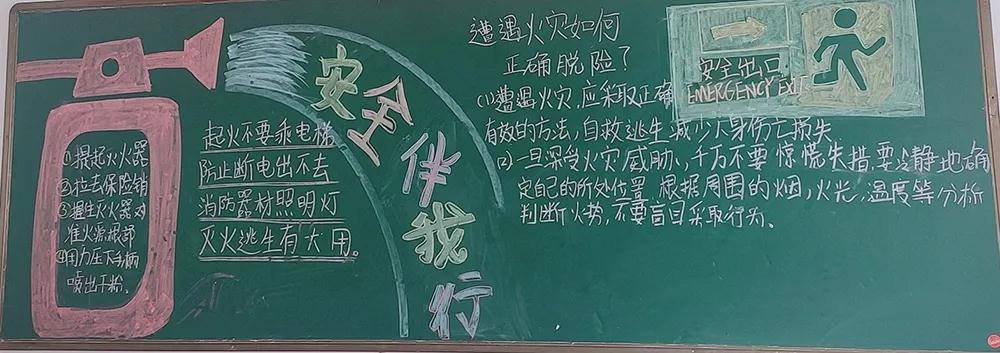 ①提起灭火器
②拉去保险销
③握住灭火器对
准火源根部
④用力压下手柄
喷出干粉。
起火不要乘电梯
防止断电出不去
消防器材照明灯
灭火逃生有大用。
安全伴我行
遭遇火灾如何
正确脱险?
(1)遭遇火灾,应采取正确
有效的方法,自救逃生,减少人身伤亡损失
(2)一旦深受火灾威胁,千万不要惊慌失措,要冷静地确
定自己的所处位置,根据周围的烟,火光,温度等分析
判断火势,不要盲目采取行为。
安全出口
EMERGENCY EXIT